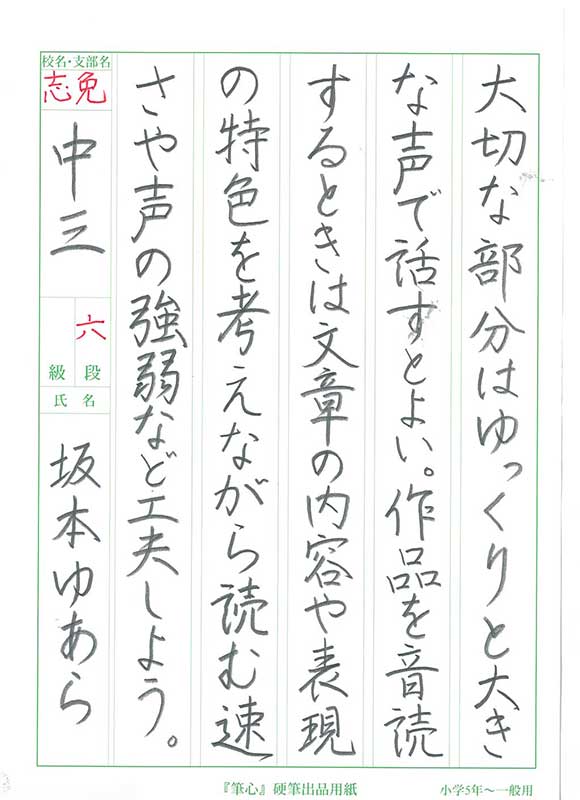 大切な部分はゆっくりと大き
な声で話すとよい。作品を音読
するときは文章の内容や表現
の特色を考えながら読む速
さや声の強弱など工夫しよう。
校名・支部名
志免
中三
六
段
級
氏名
坂本ゆあら
『筆心』硬筆出品用紙
小学5年〜一般用